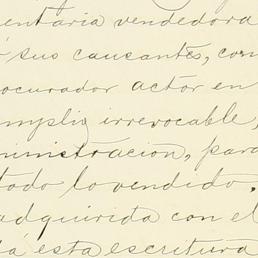 entaria vendedora
sus causantes, con
ocurador actor en
mplia irrevocable,
ministracion, para
todo lo vendido.
adquirida con el
á esta escritura